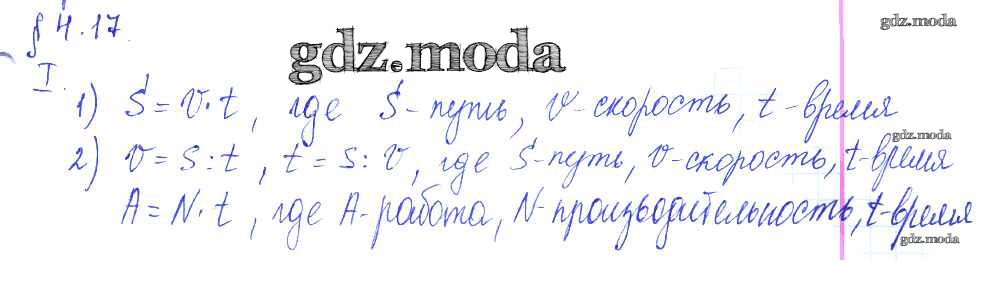 § 4.17.
gdz.moda
gdz.moda
I.
1) S = v·t, где S - путь, v - скорость, t - время
gdz.moda
2) v = s : t, t = s : v, где S - путь, v - скорость, t - время
A = N·t, где A - работа, N - производительность, t - время
gdz.moda